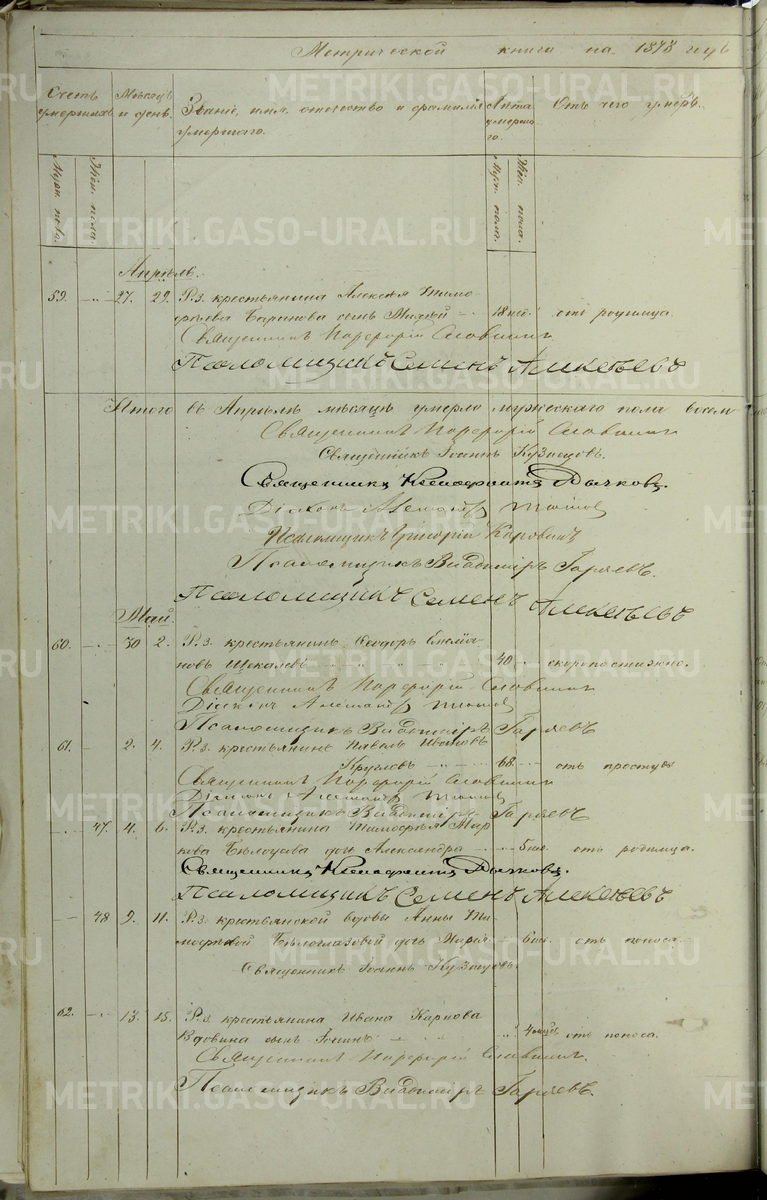 Метрической книги на 1878 годъ
Счетъ умершихъ. Мѣсяцъ и день. Званіе, имя, отчество и фамилія Лѣта умершаго. Отъ чего умеръ.
умершаго.
Муж. пола. Жен. пола. Муж. пола. Жен. пола.
Апрѣль.
59. 27. 29. Р.з. крестьянина Алексѣя Тимо-
фѣева Баранова сынъ 18 нед. отъ родимца.
Священникъ Порфирій Словцовъ
Псаломщикъ Семенъ Алексѣевъ
Итого въ Апрѣлѣ мѣсяцѣ умерло мужескаго пола восем
Священникъ Порфирій Словцовъ
Священникъ Іоаннъ Кузнецовъ.
Священникъ Ксенофонтъ Дычковъ.
Діаконъ Александръ
Псаломщикъ Григорій
Псаломщикъ Владиміръ Гаряевъ.
Псаломщикъ Семенъ Алексѣевъ
Май.
60. 30 2. Р.з. крестьянинъ Ѳеодоръ
новъ 40 скоропостижно.
Священникъ Порфирій Словцовъ
Діаконъ Александръ
Псаломщикъ Владиміръ Гаряевъ
61. 2. 4. Р.з. крестьянинъ Павелъ Ивановъ
Кругловъ 68. отъ простуды
Священникъ Порфирій Словцовъ
Діаконъ Александръ
Псаломщикъ Владиміръ Гаряевъ
47. 4. 6. Р.з. крестьянина Тимофѣя Мар
кова дочь Александра 5 отъ родимца.
Священникъ Ксенофонтъ Дычковъ.
Псаломщикъ Семенъ Алексѣевъ
48 9. 11. Р.з. крестьянской вдовы Анны Ти
мофѣевой Бѣлоглазовой дочь Марія 6 отъ поноса.
Священникъ Іоаннъ Кузнецовъ.
62. 13. 15. Р.з. крестьянина Ивана Карпова
Вдовина сынъ 4 отъ поноса.
Священникъ Порфирій Словцовъ.
Псаломщикъ Владиміръ Гаряевъ.
METRIKI.GASO-URAL.RU